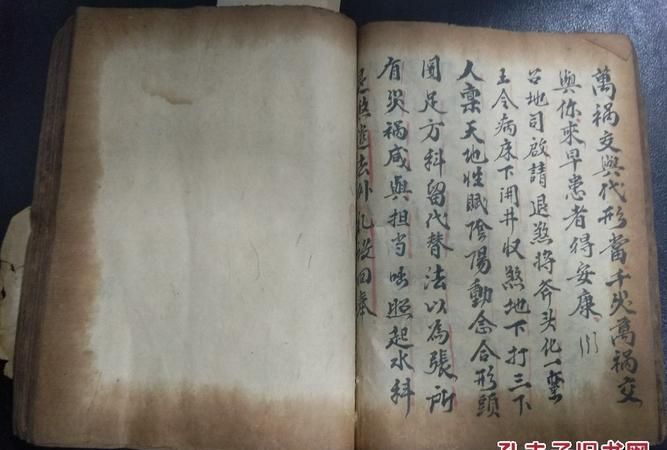 萬祸交與代形當千災萬祸交
與你來早患者得安康
召地司啟請退煞將斧头化一

王令病床下開井収煞地下打三下
人禀天地性賦陰陽動念合形頭
圓足方科留代替法以為張所
有災祸咸與担当 照起水科
退煞 法外 回奉
孔夫子旧书网